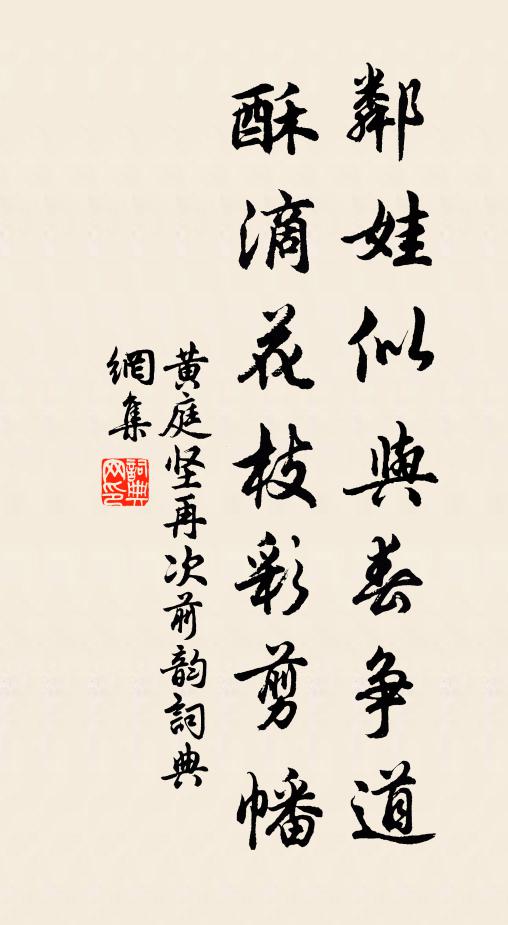 鄰娃似與春争道
酥滴花枝彩剪幡
黄庭坚再次前韵詞典
網集
詞典网印